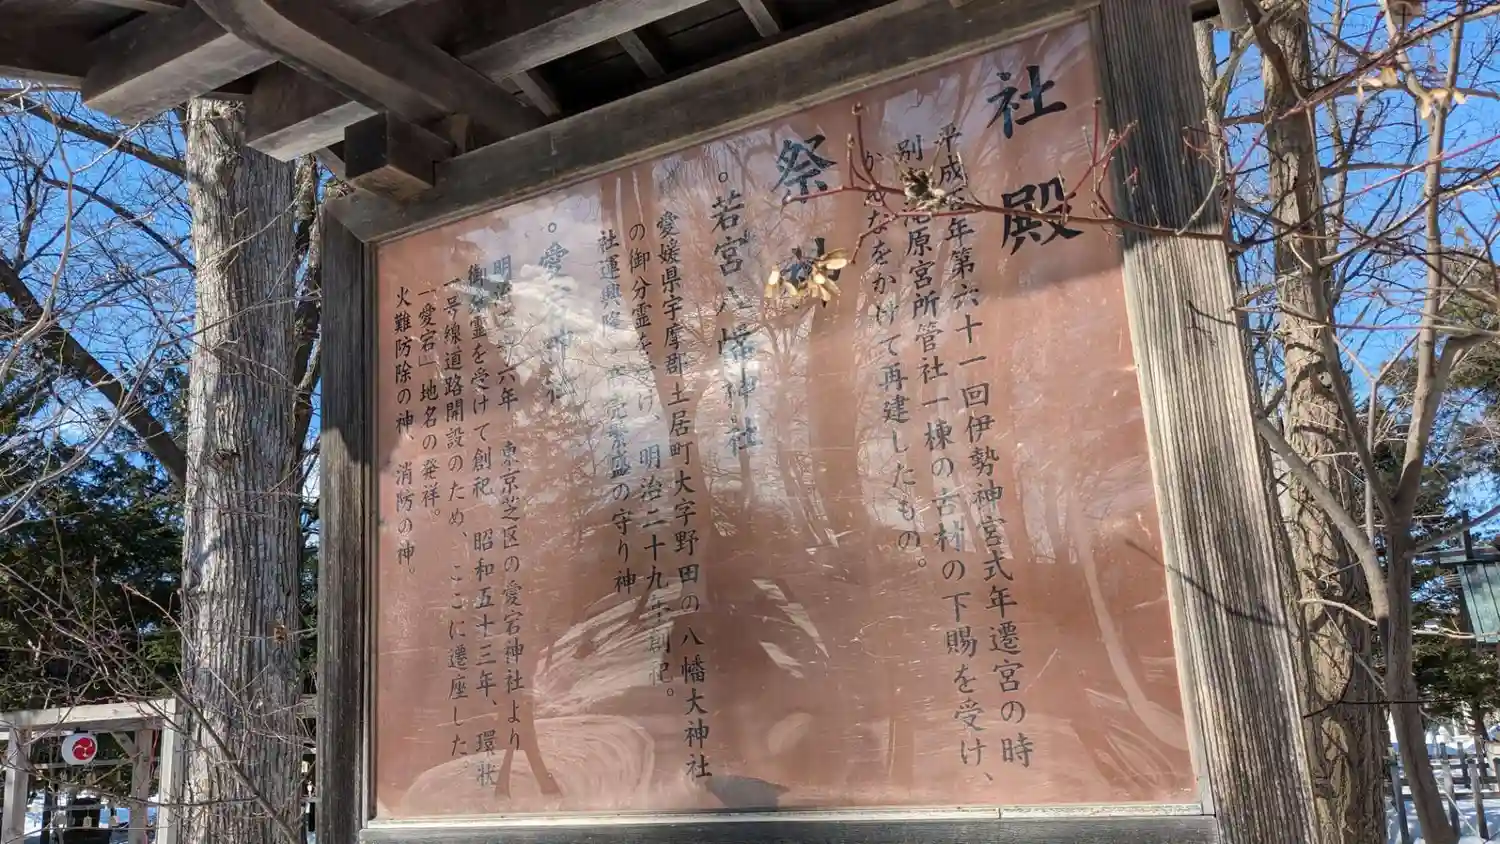 社殿
平成五年第六十一回伊勢神宮式年遷宮の時
別宮 原宮所管社一棟の古材の下賜を受け、
かんなをかけて再建したもの。
祭神
。若宮八幡神社
愛媛県宇摩郡土居町大字野田の八幡大神社
の御分霊を受け、明治二十九年創祀。
社運興隆、商売繁盛の守り神
。愛宕神社
明治 十六年 東京芝区の愛宕神社より
御分霊を受けて創祀 昭和五十三年、環状
一号線道路開設のため、ここに遷座した。
「愛宕」地名の発祥。
火難防除の神、消防の神。